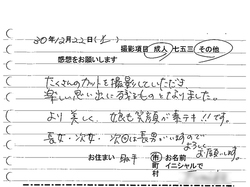 30年12月22日(土)
撮影項目 成人 七五三 その他
感想をお願いします
たくさんのカットを撮影していただき
楽しい思い出に残るものとなりました。
より美しく、娘も笑顔が素テキ!!です。
長女・次女・次回は長男がいますので
よろしく
お願いします。
お住まい 市 お名前
町 イニシャルで
村